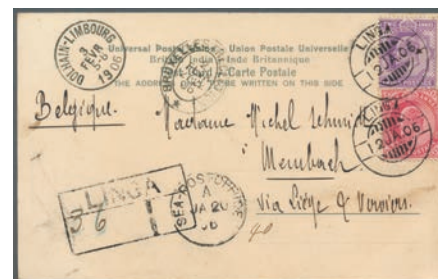 DOLHAIN-LIMBOURG
3
FEVR
5-6
1906
LINGA
12 JA. 06
Universal Postal Union - Union Postale Universelle
British India - Inde Britannique
Post-Card - Carte Postale
THE ADDRESS ONLY TO BE WRITTEN ON THIS SIDE
LINGA
12 JA. 06
Belgique.
Madame Michel Schmitt
Membach
via Liège & Verviers.
LINGA
36
SEA-POST OFFICE
A
JA 20
06